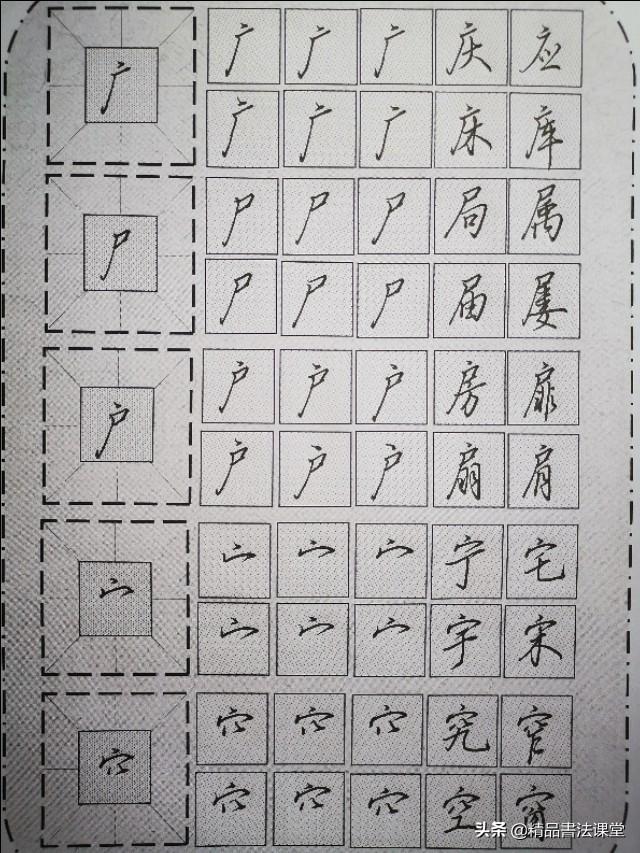 广
广 广 广 庆 应
广 广 广 床 库
尸
尸 尸 尸 局 属
尸 尸 尸 届 屡
户
户 户 户 房 扉
户 户 户 扇 肩
宀
宀 宀 宀 宁 宅
宀 宀 宀 宇 宋
穴
穴 穴 穴 究 窄
穴 穴 穴 空
头条 @精品書法课堂